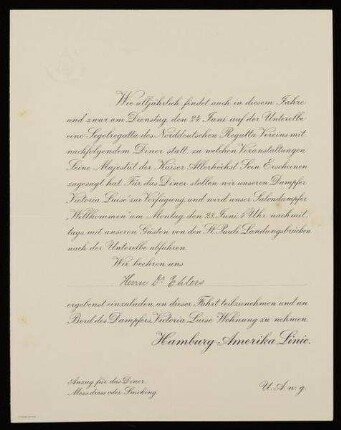 Wie alljährlich, findet auch in diesem Jahre
und zwar am Dienstag, den 24. Juni auf der Unterelbe
eine Segelregatta des Norddeutschen Regatta Vereins mit
nachfolgendem Diner statt, zu welchen Veranstaltungen
Seine Majestät der Kaiser Allerhöchst Sein Erscheinen
zugesagt hat. Für das Diner stellen wir unseren Dampfer
Victoria Luise zur Verfügung und wird unser Salondampfer
Willkommen am Montag, den 23. Juni, 4 Uhr nachmit-
tags mit unseren Gästen von den St. Pauli Landungsbrücken
nach der Unterelbe abfahren.
Wir beehren uns
Herrn Dr. Ehlers
ergebenst einzuladen, an dieser Fahrt teilzunehmen und an
Bord des Dampfers Victoria Luise Wohnung zu nehmen.
Hamburg-Amerika Linie.
Anzug für das Diner:
Messdress oder Smoking.
U. A. w. g.